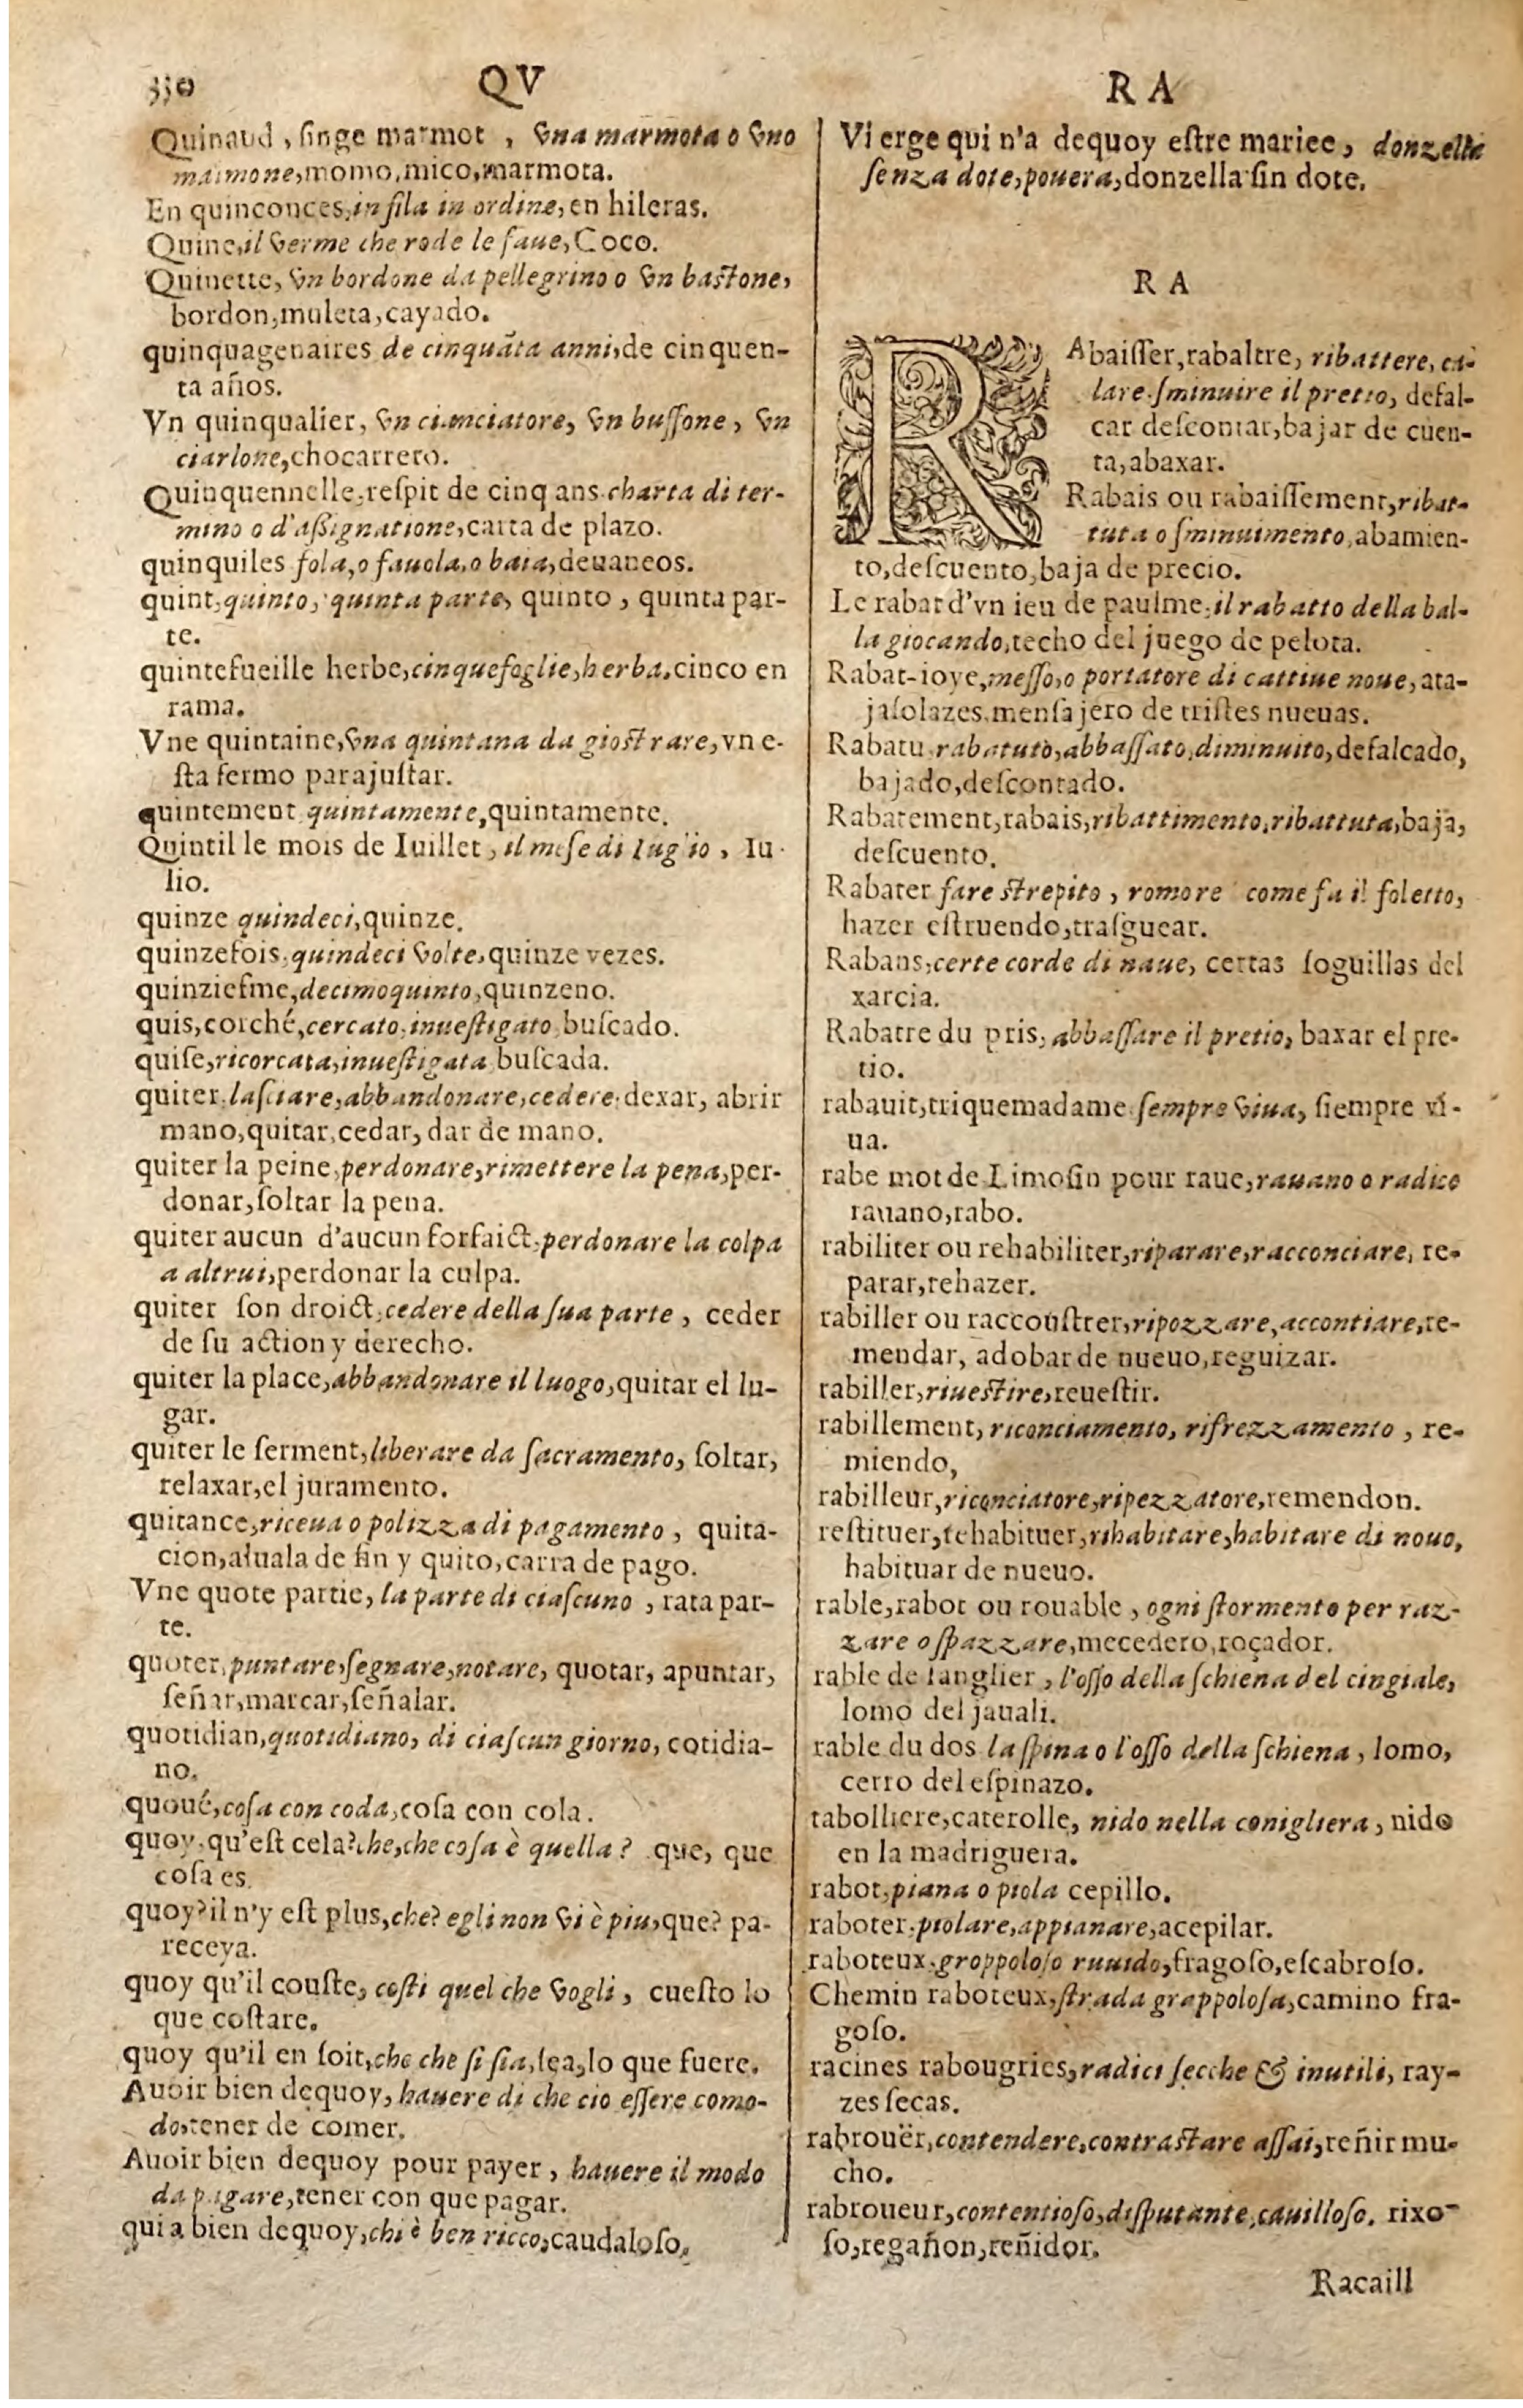 330
QV
Quinaud, singe marmot, vna marmota o vno
maimone, momo, mico, marmota.
En quinconces, in fila in ordine, en hileras.
Quine, il verme che rode le faue, Coco.
Quinette, vn bordone da pellegrino o vn bastone,
bordon, muleta, cayado.
quinquagenaires de cinquãta anni, de cinquen-
ta años.
Vn quinqualier, vn cianciatore, vn buffone, vn
ciarlone, chocarrero.
Quinquennelle, respit de cinq ans charta di ter-
mino o d'assignatione, carta de plazo.
quinquiles fola, o fauola, o baia, deuaneos.
quint, quinto, quinta parte, quinto, quinta par-
te.
quintefueille herbe, cinquefoglie, herba, cinco en
rama.
Vne quintaine, vna quintana da giostrare, vn e-
sta fermo para justar.
quintement quintamente, quintamente.
Quintil le mois de Iuillet, il mese di luglio, Iu-
lio.
quinze quindeci, quinze.
quinzefois, quindeci volte, quinze vezes.
quinziesme, decimoquinto, quinzeno.
quis, corché, cercato, inuestigato buscado.
quise, ricorcata, inuestigata buscada.
quiter, lasciare, abbandonare, cedere, dexar, abrir
mano, quitar, cedar, dar de mano.
quiter la peine, perdonare, rimettere la pena, per-
donar, soltar la pena.
quiter aucun d'aucun forfaict, perdonare la colpa
a altrui, perdonar la culpa.
quiter son droict, cedere della sua parte, ceder
de su action y derecho.
quiter la place, abbandonare il luogo, quitar el lu-
gar.
quiter le serment, liberare da sacramento, soltar,
relaxar, el juramento.
quitance, riceua o polizza di pagamento, quita-
cion, aluala de fin y quito, carra de pago.
Vne quote partie, la parte di ciascuno, rata par-
te.
quoter, puntare, segnare, notare, quotar, apuntar,
señar, marcar, señalar.
quotidian, quotidiano, di ciascun giorno, cotidia-
no.
quoué, cosa con coda, cosa con cola.
quoy, qu'est cela? che, che cosa è quella? que, que
cosa es.
quoy? il n'y est plus, che? egli non vi è piu, que? pa-
receya.
quoy qu'il couste, costi quel che vogli, cuesto lo
que costare.
quoy qu'il en soit, che che si sia, sea, lo que fuere.
Auoir bien dequoy, hauere di che cio essere como-
do, tener de comer.
Auoir bien dequoy pour payer, hauere il modo
da pagare, tener con que pagar.
qui a bien dequoy, chi è ben ricco, caudaloso.
RA
Vierge qui n'a dequoy estre mariee, donzella
senza dote, pouera, donzella sin dote.
RA
RAbaisser, rabaltre, ribattere, ca-
lare sminuire il pretio, desal-
car descontar, bajar de cuen-
ta, abaxar.
Rabais ou rabaissement, ribat-
tuta o sminuimento, abamien-
to, descuento, baja de precio.
Le rabat d'vn ieu de paulme, il rabatto della bal-
la giocando, techo del juego de pelota.
Rabat-ioye, messo, o portatore di cattiue noue, ata-
jasolazes, mensajero de tristes nueuas.
Rabatu rabatuto, abbassato, diminuito, defalcado,
bajado, descontado.
Rabatement, rabais, ribattimento, ribattuta, baja,
descuento.
Rabater fare strepito, romore come fa il foletto,
hazer estruendo, trasguear.
Rabans, certe corde di naue, certas soguillas del
xarcia.
Rabatre du pris, abbassare il pretio, baxar el pre-
tio.
rabauit, triquemadame sempre viua, siempre vi-
ua.
rabe mot de Limosin pour raue, rauano o radice
rauano, rabo.
rabiliter ou rehabiliter, riparare, racconciare, re-
parar, rehazer.
rabiller ou raccoustrer, ripozzare, accontiare, re-
mendar, adobar de nueuo, reguizar.
rabiller, riuestire, reuestir.
rabillement, riconciamento, rifrezzamento, re-
miendo,
rabilleur, riconciatore, ripezzatore, remendon.
restituer, rehabituer, rihabitare, habitare di nouo,
habituar de nueuo.
rable, rabot ou rouable, ogni stormento per raz-
zare o spazzare, mecedero, roçador.
rable de sanglier, l'osso della schiena del cingiale,
lomo del jauali.
rable du dos la spina o l'osso della schiena, lomo,
cerro del espinazo.
tabolliere, caterolle, nido nella conigliera, nido
en la madriguera.
rabot, piana o piola cepillo.
raboter, piolare, appianare, acepilar.
raboteux, groppoloso ruuido, fragoso, escabroso.
Chemin raboteux, strada grappolosa, camino fra-
goso.
racines rabougries, radici secche & inutili, ray-
zes secas.
rabrouër, contendere, contrastare assai, reñir mu-
cho.
rabroueur, contentioso, disputante, cauilloso. rixo-
so, regañon, reñidor.
Racaill